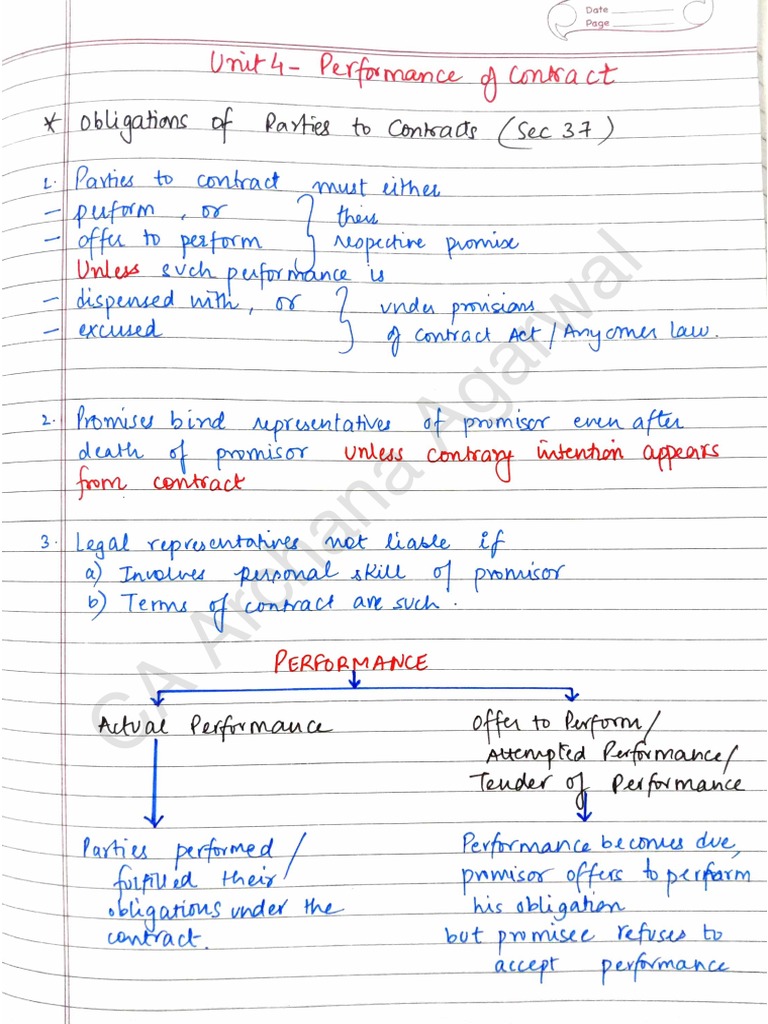 Date
Page
Unit 4 - Performance of Contract
* Obligations of Parties to Contracts (Sec 37)
1. Parties to contract must either
- perform, or } their
- offer to perform } respective promise
Unless such performance is
- dispensed with, or } under provisions
- excused } of Contract Act / Any other law.
2. Promises bind representatives of promisor even after
death of promisor unless contrary intention appears
from contract
3. Legal representatives not liable if
a) Involves personal skill of promisor
b) Terms of contract are such.
PERFORMANCE
Actual Performance
Offer to Perform/
Attempted Performance/
Tender of Performance
Parties performed/
fulfilled their
obligations under the
contract.
Performance becomes due,
promisor offers to perform
his obligation
but promisee refuses to
accept performance
CA Archana Agarwal